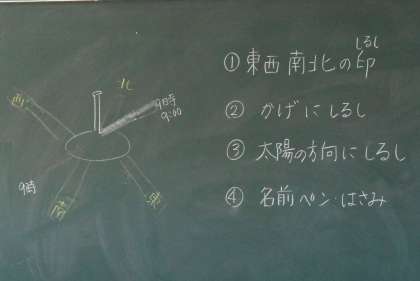 北
9時
9:00
西
9時
南
東
しるし
① 東西南北の印
② かげにしるし
③ 太陽の方向にしるし
④ 名前ペン・はさみ